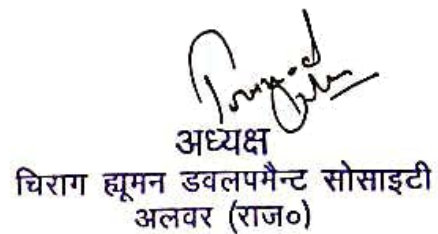 अध्यक्ष
चिराग ह्यूमन डवलपमैन्ट सोसाइटी
अलवर (राज०)